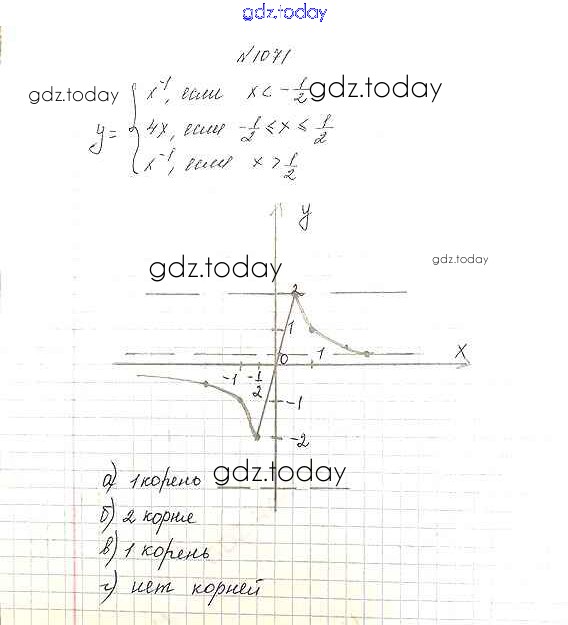 gdz.today
№1071
gdz.today x⁻¹, если x < -1/2 gdz.today
y = { 4x, если -1/2 ≤ x ≤ 1/2
x⁻¹, если x > 1/2
y
gdz.today
gdz.today
2
1
x
0 1
-1 -1/2
-1
-2
а) 1 корень gdz.today
б) 2 корня
в) 1 корень
г) нет корней